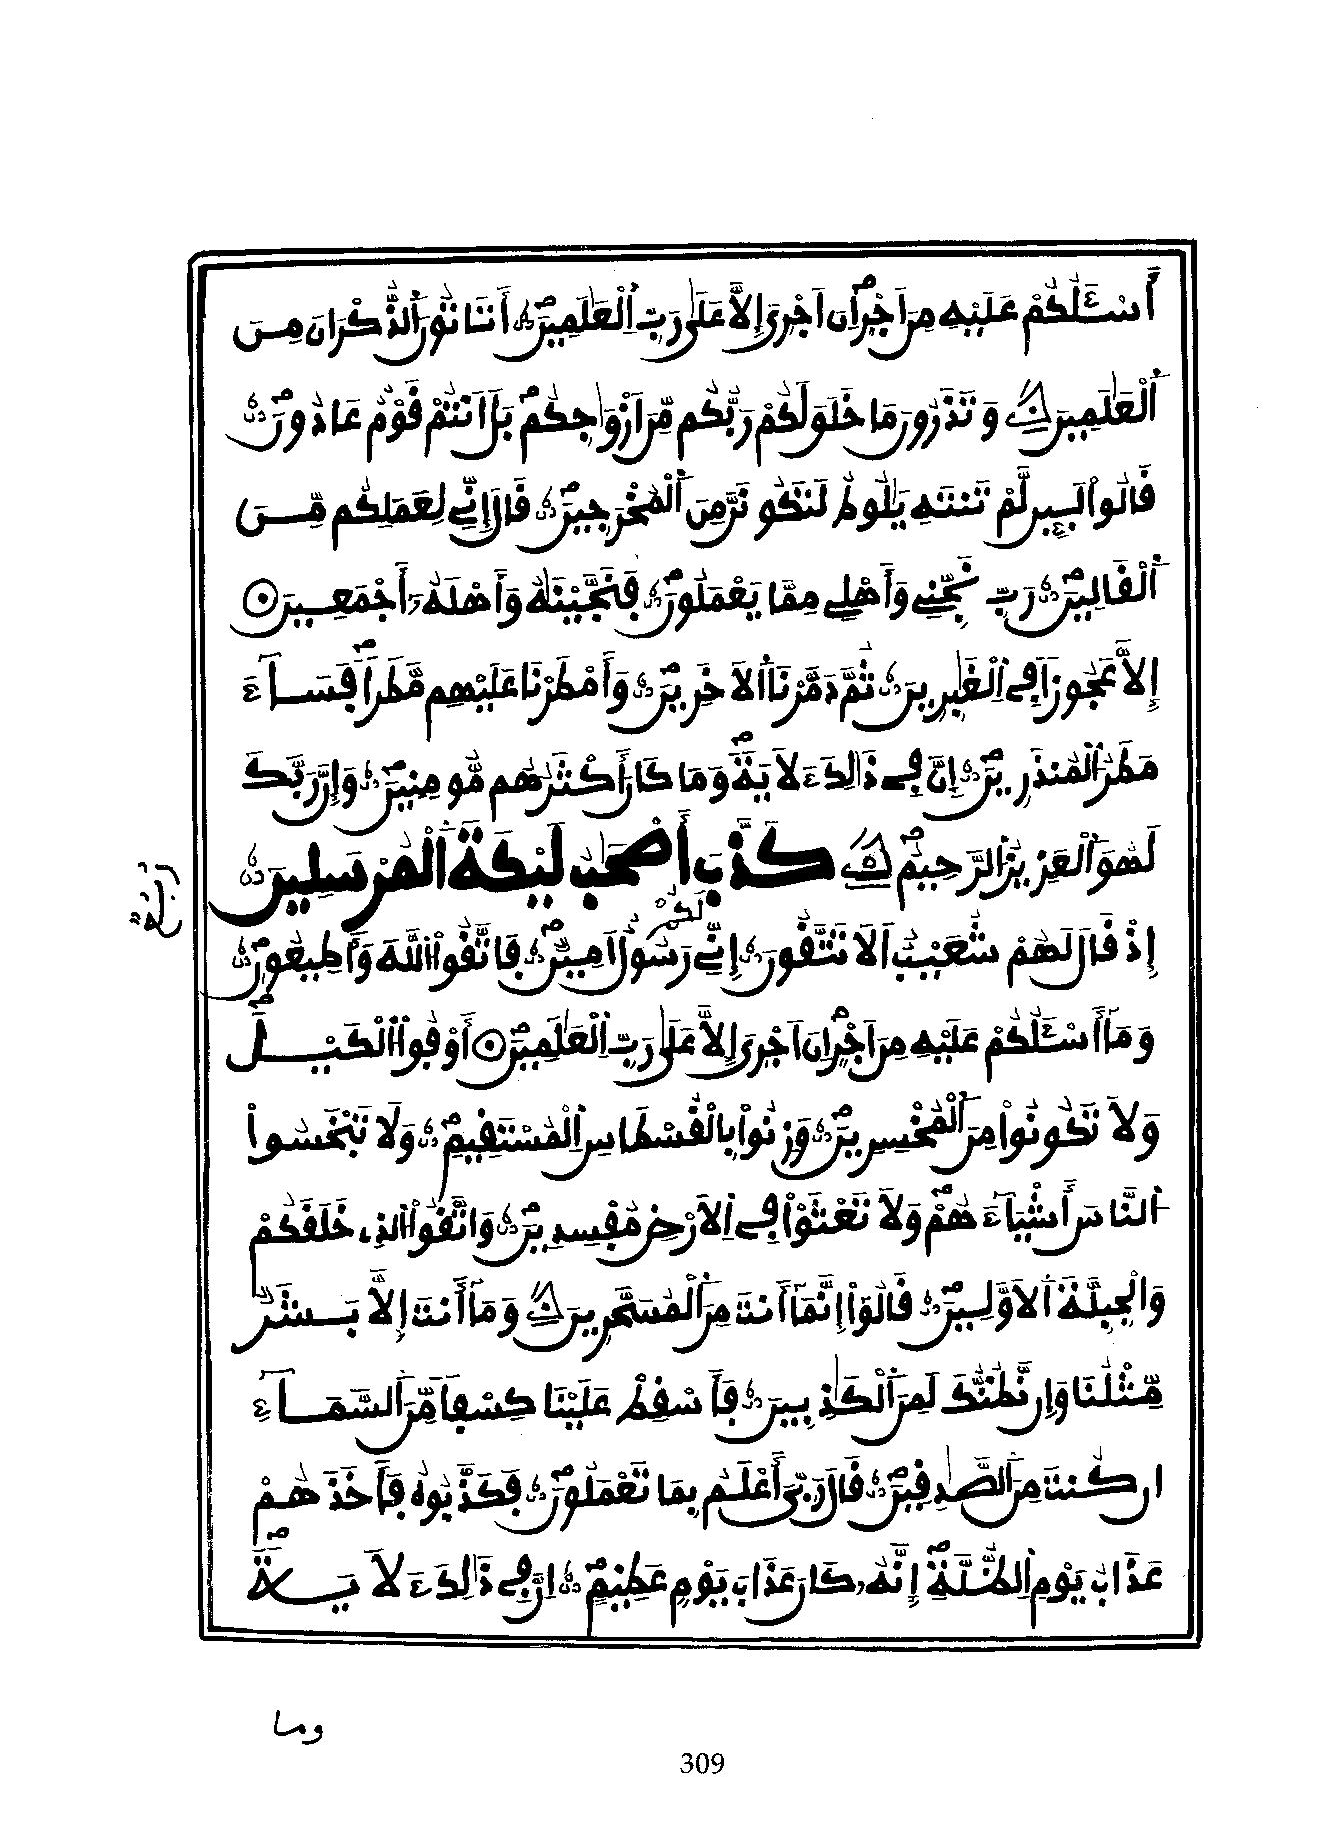 أَسْـَٔلُكُمْ عَلَيْهِ مِنَ اَجْرٍ اِنَ اَجْرِيَ إِلَّا عَلَىٰ رَبِّ اِ۬لْعَٰلَمِينَ أَتَاتُونَ اَ۬لذُّكْرَانَ مِنَ
اَ۬لْعَٰلَمِينَ وَتَذَرُونَ مَا خَلَقَ لَكُمْ رَبُّكُم مِّنَ اَزْوَٰجِكُم بَلَ اَنتُمْ قَوْمٌ عَادُونَ
قَالُواْ لَئِن لَّمْ تَنتَهِ يَٰلُوطُ لَتَكُونَنَّ مِنَ اَ۬لْمُخْرَجِينَ قَالَ إِنِّي لِعَمَلِكُم مِّنَ
اَ۬لْقَالِينَ رَبِّ نَجِّنِي وَأَهْلِي مِمَّا يَعْمَلُونَ فَنَجَّيْنَٰهُ وَأَهْلَهُۥ أَجْمَعِينَ
إِلَّا عَجُوزاً فِي اِ۬لْغَٰبِرِينَ ثُمَّ دَمَّرْنَا اَ۬لَاخَرِينَ وَأَمْطَرْنَا عَلَيْهِم مَّطَراً فَسَآءَ
مَطَرُ اُ۬لْمُنذَرِينَ إِنَّ فِي ذَٰلِكَ ءَلَايَةً وَمَا كَانَ أَكْثَرُهُم مُّومِنِينَ وَإِنَّ رَبَّكَ
لَهُوَ اَ۬لْعَزِيزُ اُ۬لرَّحِيمُ كَذَّبَ أَصْحَٰبُ لَيْكَةَ اَ۬لْمُرْسَلِينَ
رُبُعٌ
إِذْ قَالَ لَهُمْ شُعَيْبٌ اَلَا تَتَّقُونَ إِنِّي لَكُمْ رَسُولٌ اَمِينٌ فَاتَّقُواْ اُ۬للَّهَ وَأَطِيعُونِ
وَمَآ أَسْـَٔلُكُمْ عَلَيْهِ مِنَ اَجْرٍ اِنَ اَجْرِيَ إِلَّا عَلَىٰ رَبِّ اِ۬لْعَٰلَمِينَ أَوْفُواْ اُ۬لْكَيْلَ
وَلَا تَكُونُواْ مِنَ اَ۬لْمُخْسِرِينَ وَزِنُواْ بِالْقُسْطَاسِ اِ۬لْمُسْتَقِيمِ وَلَا تَبْخَسُواْ
اُ۬لنَّاسَ أَشْيَآءَهُمْ وَلَا تَعْثَوْاْ فِي اِ۬لَارْضِ مُفْسِدِينَ وَاتَّقُواْ اُ۬لذِي خَلَقَكُمْ
وَالْجِبِلَّةَ اَ۬لَاوَّلِينَ قَالُوٓاْ إِنَّمَآ أَنتَ مِنَ اَ۬لْمُسَحَّرِينَ وَمَآ أَنتَ إِلَّا بَشَرٌ
مِّثْلُنَا وَإِن نَّظُنُّكَ لَمِنَ اَ۬لْكَٰذِبِينَ فَأَسْقِطْ عَلَيْنَا كِسْفاً مِّنَ اَ۬لسَّمَآءِ
ان كُنتَ مِنَ اَ۬لصَّٰدِقِينَ قَالَ رَبِّيَ أَعْلَمُ بِمَا تَعْمَلُونَ فَكَذَّبُوهُ فَأَخَذَهُمْ
عَذَابُ يَوْمِ اِ۬لظُّلَّةِ إِنَّهُۥ كَانَ عَذَابَ يَوْمٍ عَظِيمٍ اِنَّ فِي ذَٰلِكَ ءَلَايَةً
وما
309